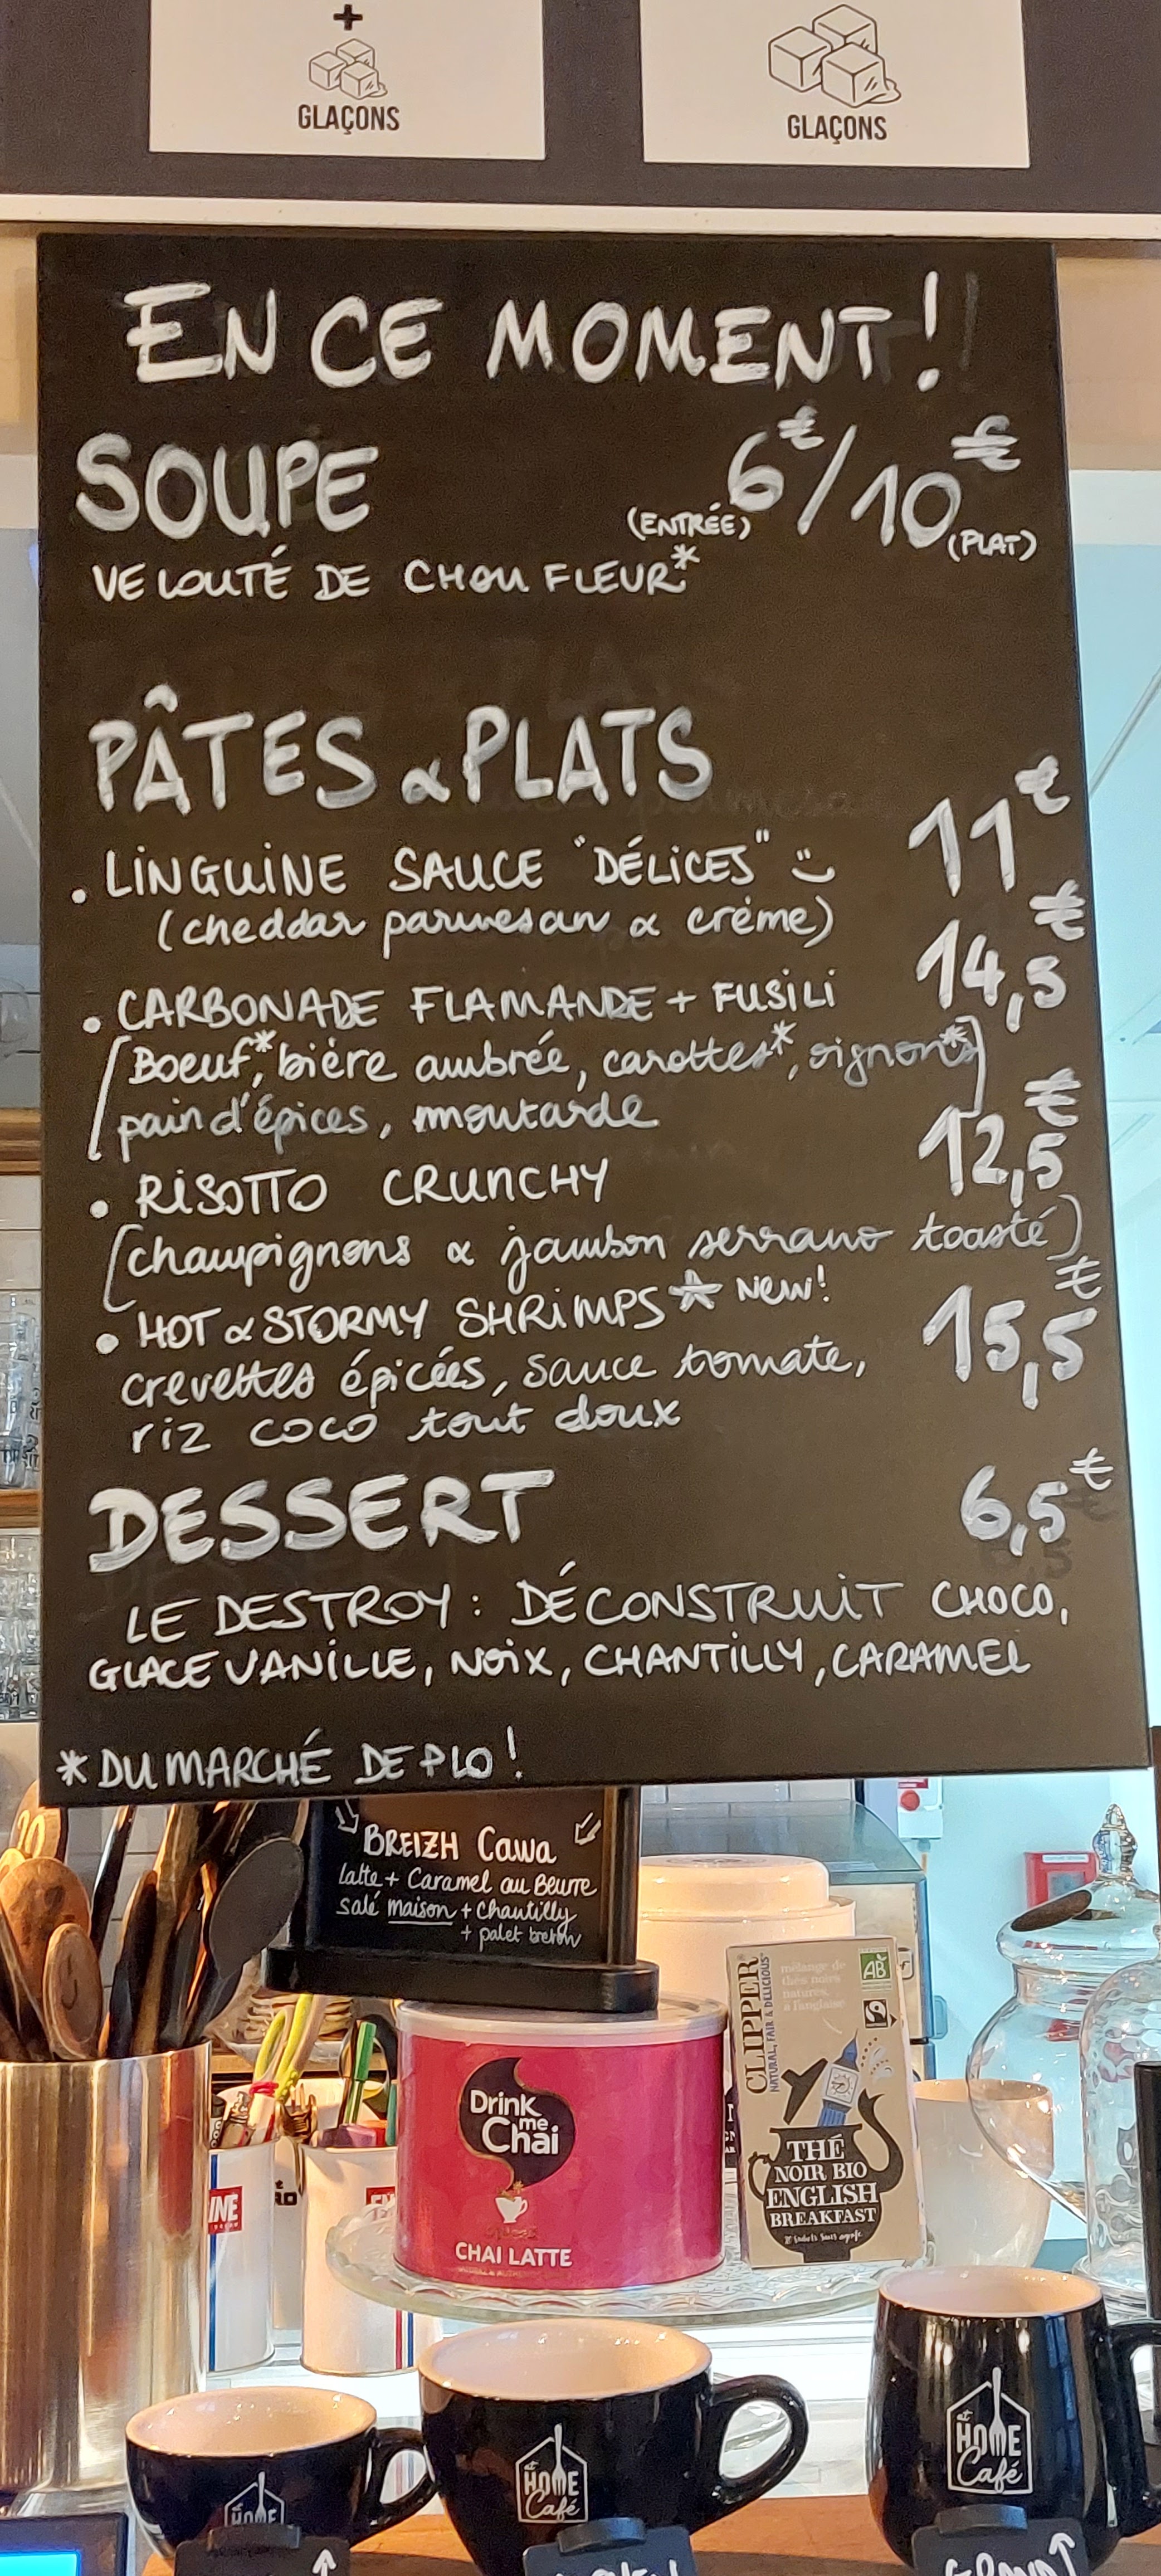 +
GLAÇONS
GLAÇONS
EN CE MOMENT !
SOUPE 6€/10€
(ENTRÉE) (PLAT)
VELOUTÉ DE CHOU FLEUR*
PÂTES & PLATS
• LINGUINE SAUCE "DÉLICES" :) 11€
(cheddar parmesan & crème)
• CARBONADE FLAMANDE + FUSILI 14,5€
[Boeuf*, bière ambrée, carottes*, oignons*
pain d'épices, moutarde]
• RISOTTO CRUNCHY 12,5€
(champignons & jambon serrano toasté)
• HOT & STORMY SHRIMPS ☆ NEW! 15,5€
crevettes épicées, sauce tomate,
riz coco tout doux
DESSERT 6,5€
LE DESTROY : DÉCONSTRUIT CHOCO,
GLACE VANILLE, NOIX, CHANTILLY, CARAMEL
* DU MARCHÉ DE PLO !
BREIZH Cawa
latte + Caramel au Beurre
salé maison + chantilly
+ palet breton
CLIPPER
NATURAL, FAIR & DELICIOUS
mélange de
thés noirs
natures,
à l'anglaise
AB
Drink
me
Chai
CHAI LATTE
THÉ
NOIR BIO
ENGLISH
BREAKFAST
at
HOME
at
HOME
Café
at
HOME
Café
GRAND